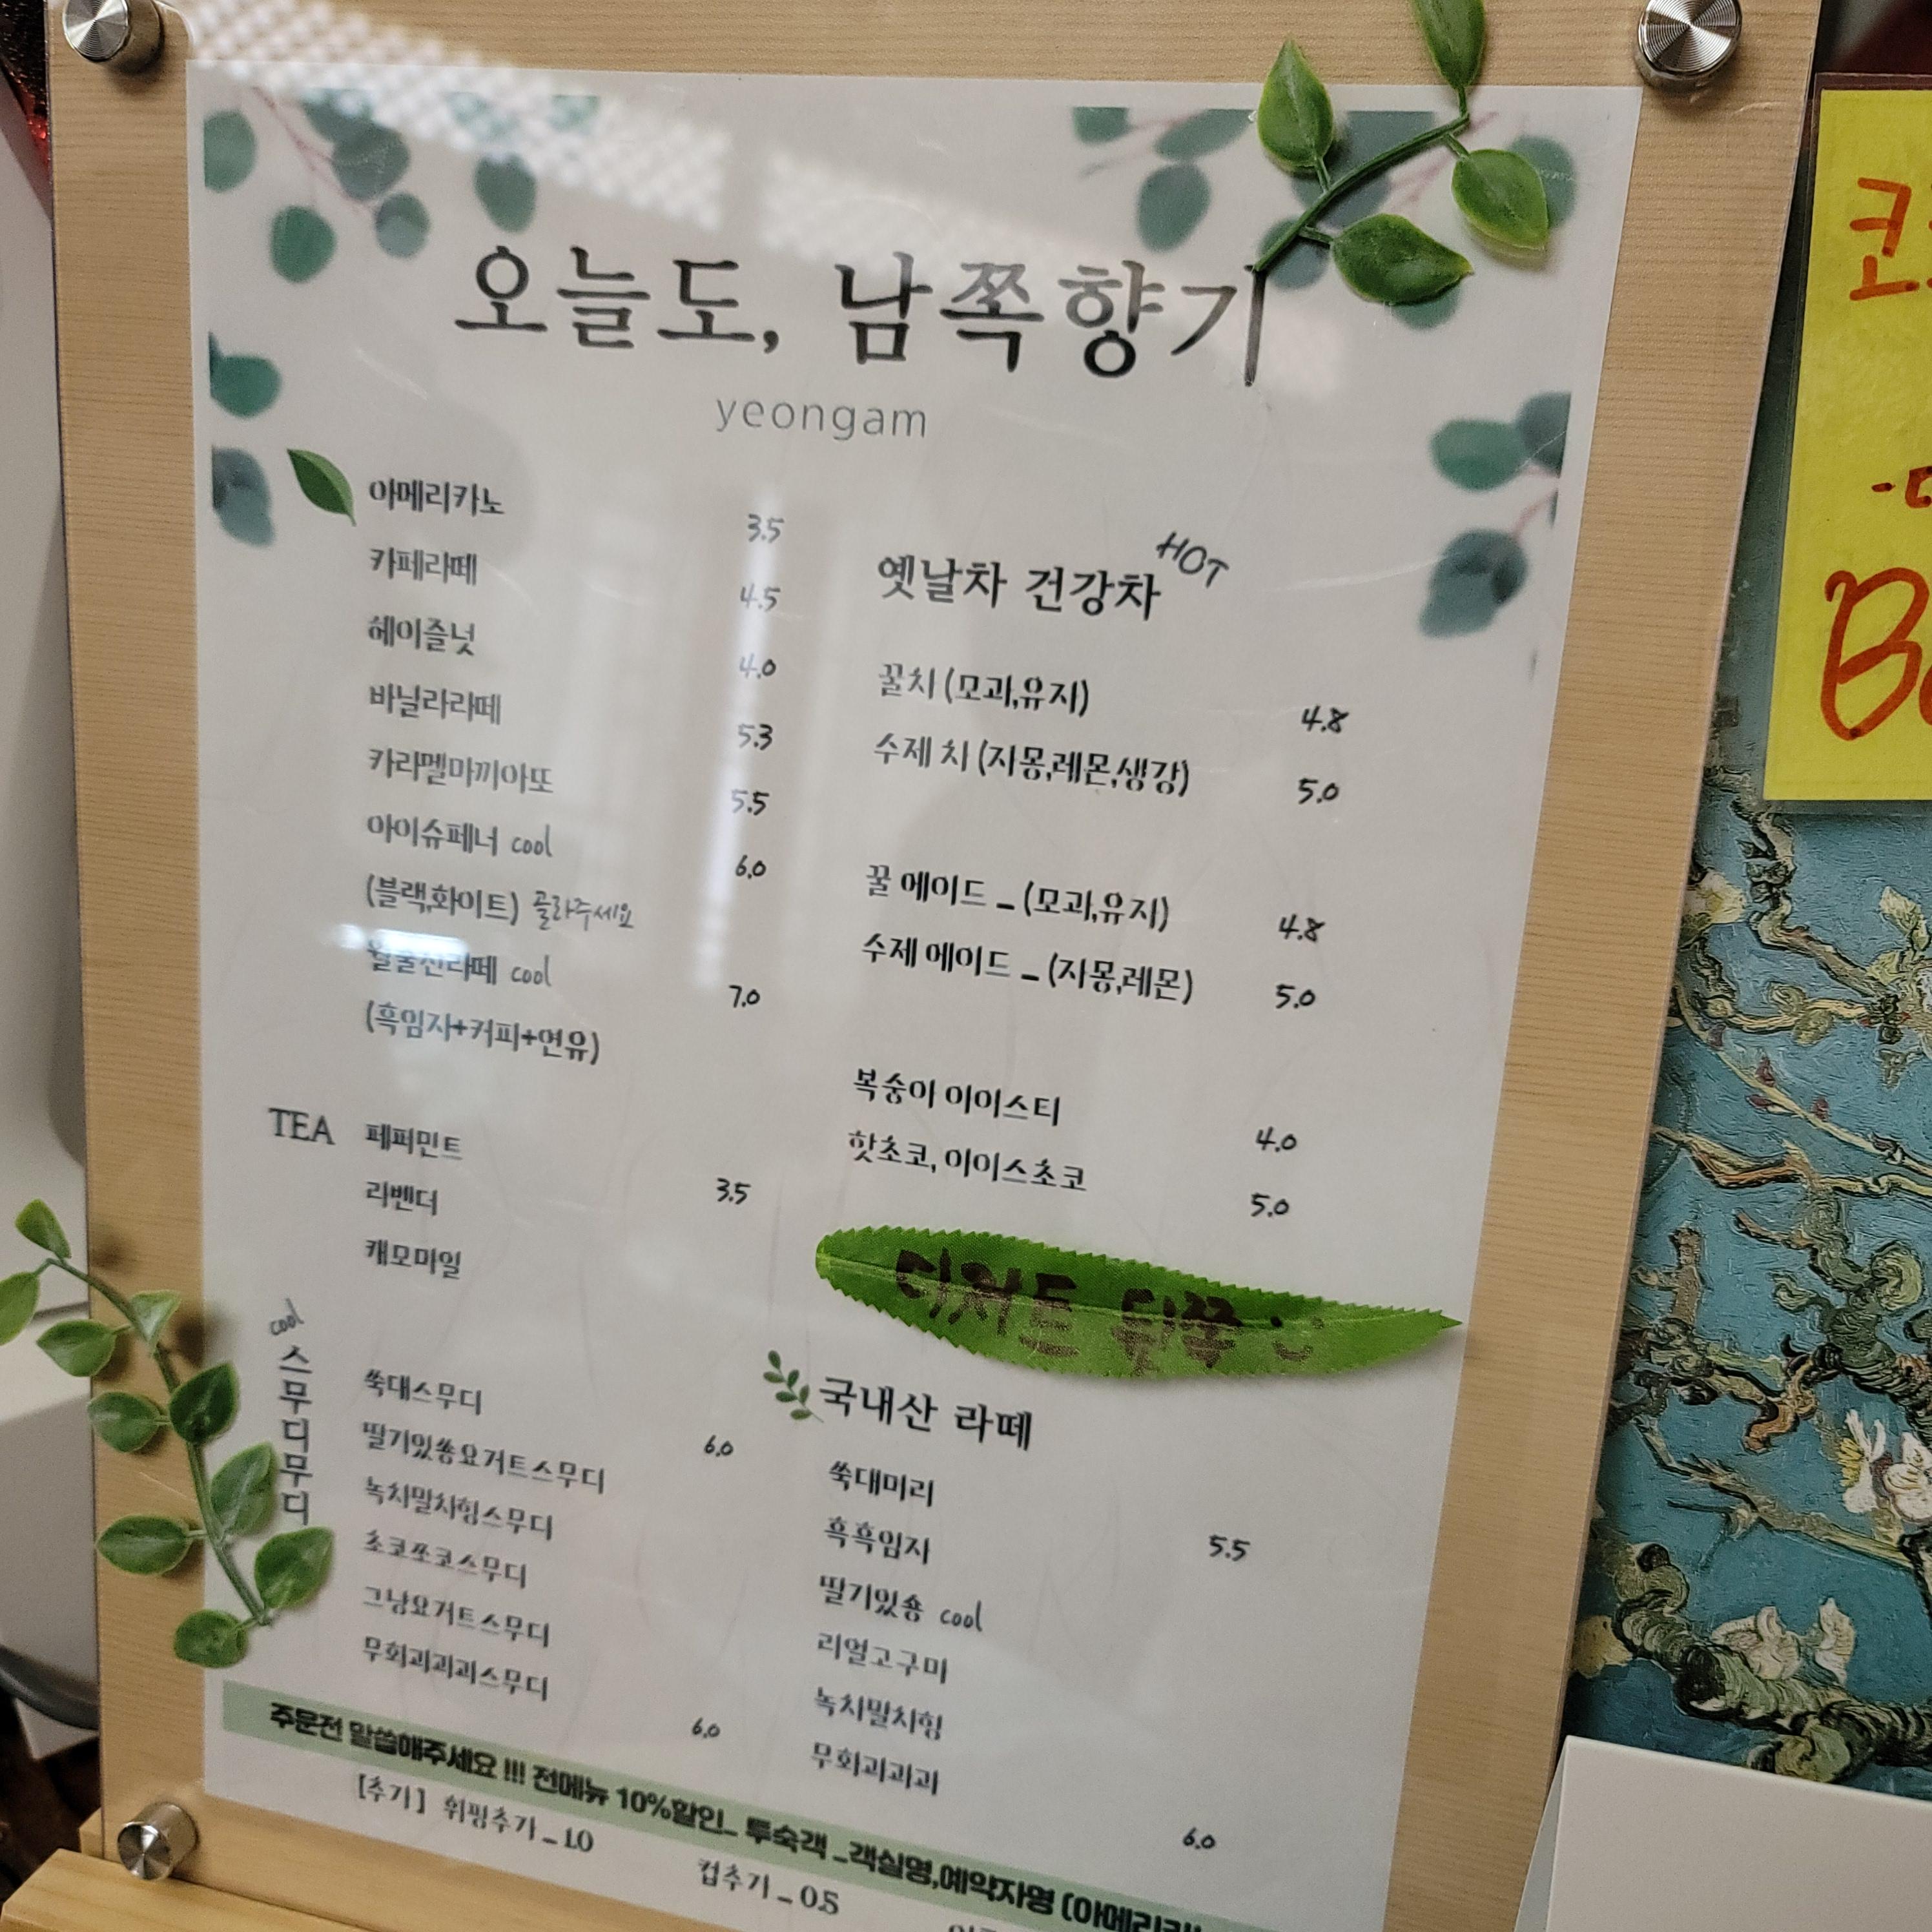 오늘도, 남쪽향기
yeongam
아메리카노 3.5
카페라떼 4.5
헤이즐넛 4.0
바닐라라떼 5.3
카라멜마끼아또 5.5
아이슈페너 cool 6.0
(블랙,화이트) 골라주세요
월출산라떼 cool 7.0
(흑임자+커피+연유)
TEA 페퍼민트
라벤더 3.5
캐모마일
cool
스무디무디
쑥대스무디
딸기있쏭요거트스무디 6.0
녹차말차힝스무디
초코쪼코스무디
그냥요거트스무디
무화과과과스무디 6.0
옛날차 건강차 HOT
꿀차 (모과,유자) 4.8
수제 차 (자몽,레몬,생강) 5.0
꿀 에이드 _ (모과,유자) 4.8
수제 에이드 _ (자몽,레몬) 5.0
복숭아 아이스티 4.0
핫초코, 아이스초코 5.0
디저트 뒷쪽
국내산 라떼
쑥대머리
흑흑임자 5.5
딸기있숑 cool
리얼고구마
녹차말차힝
무화과과과 6.0
주문전 말씀해주세요 !!! 전메뉴 10%할인_ 투숙객 _객실명,예약자명
[추가] 휘핑추가 _ 1.0
컵추가 _ 0.5